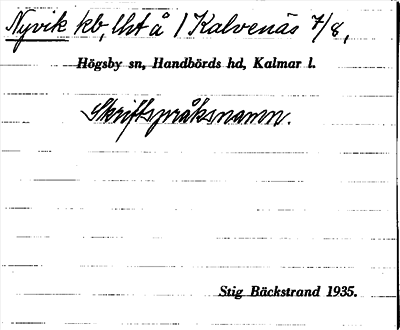 Nyvik kb, lht å 1 Kalvenäs 7/8,
Högsby sn, Handbörds hd, Kalmar l.
Skriftspråksnamn.
Stig Bäckstrand 1935.